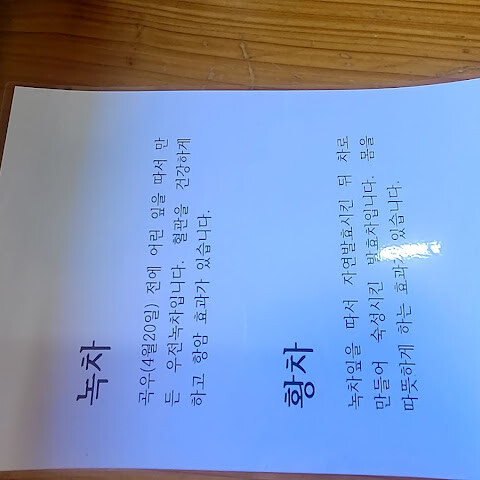 녹차
곡우(4월20일) 전에 어린 잎을 따서 만
든 우전녹차입니다. 혈관을 건강하게
하고 항암 효과가 있습니다.
황차
녹차잎을 따서 자연발효시킨 뒤 차로
만들어 숙성시킨 발효차입니다. 몸을
따뜻하게 하는 효과가 있습니다.